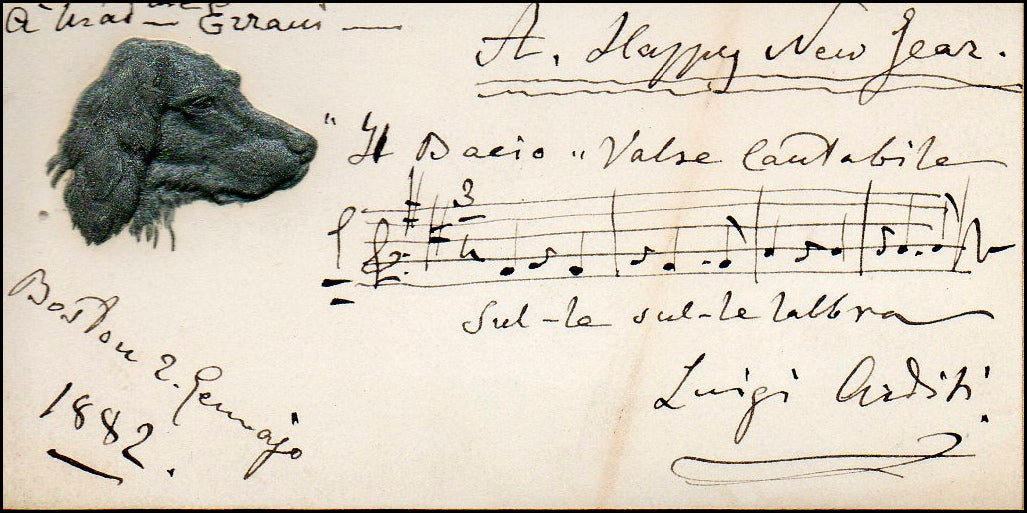 Errani —
A. Happy New Year.
"Il Bacio" Valse Cantabile
Sul-le sul-le labbra
Luigi Arditi.
Boston 2. Gennajo
1882.